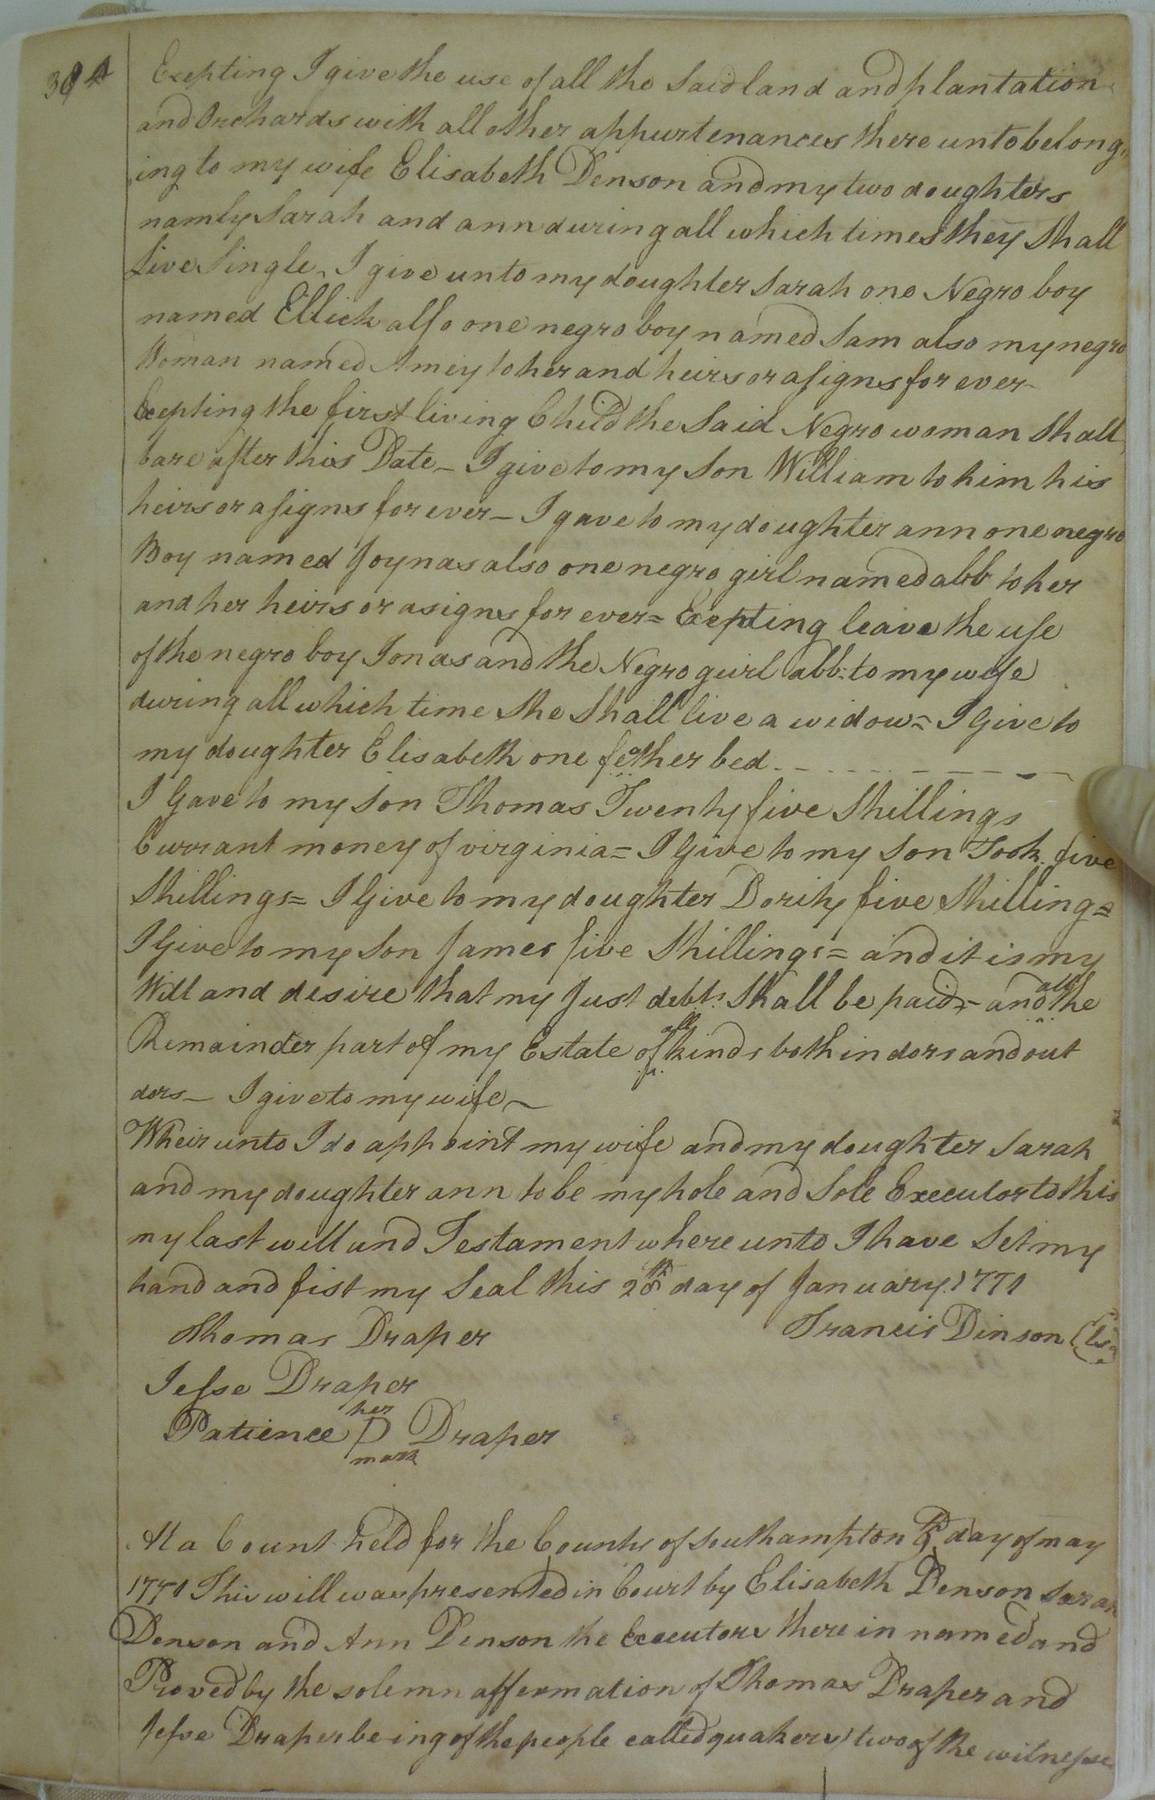 384
Excepting I give the use of all the Said land and plantation
and Orchards with all other appurtenances there unto belong,,
ing to my wife Elisabeth Denson and my two doughters
namly Sarah and ann during all which times they Shall
Live Single, I give unto my doughter Sarah one Negro boy
named Ellick also one negro boy named Sam also my negro
Woman named Amey to her and heirs or asigns for ever-
Excepting the first living Child the Said Negro woman Shall
bare after this Date - I give to my Son William to him his
heirs or asigns for ever - I gave to my doughter ann one negro
Boy named Joynas also one negro girl named abb to her
and her heirs or asigns for ever = Excepting leave the use
of the negro boy Jonas and the Negro guirl abb: to my wife
during all which time She Shall live a widow = I Give to
my doughter Elisabeth one fether bed
I Gave to my Son Thomas Twenty five Shillings
Currant money of virginia = I Give to my Son Took five
Shillings = I Give to my doughter Dority five Shilling =
I Give to my Son James five Shillings = and it is my
Will and desire that my Just debts Shall be paid - and all the
Remainder part of my Estate of all kinds both in dors and out
dors - I give to my wife -
Wheir unto I do appoint my wife and my doughter Sarah
and my doughter ann to be my hole and Sole Executor to this
my last will and Testament where unto I have Set my
hand and fist my Seal this 28th day of January 1771
Thomas Draper Francis Dinson
Jesse Draper
Patience her P mark Draper
At a Court held for the County of Southampton day of may
1771 This will was presented in Court by Elisabeth Denson Sarah
Denson and Ann Denson the Executors there in named and
Proved by the solemn affermation of Thomas Draper and
Jesse Draper being of the people called quakers two of the witnesses